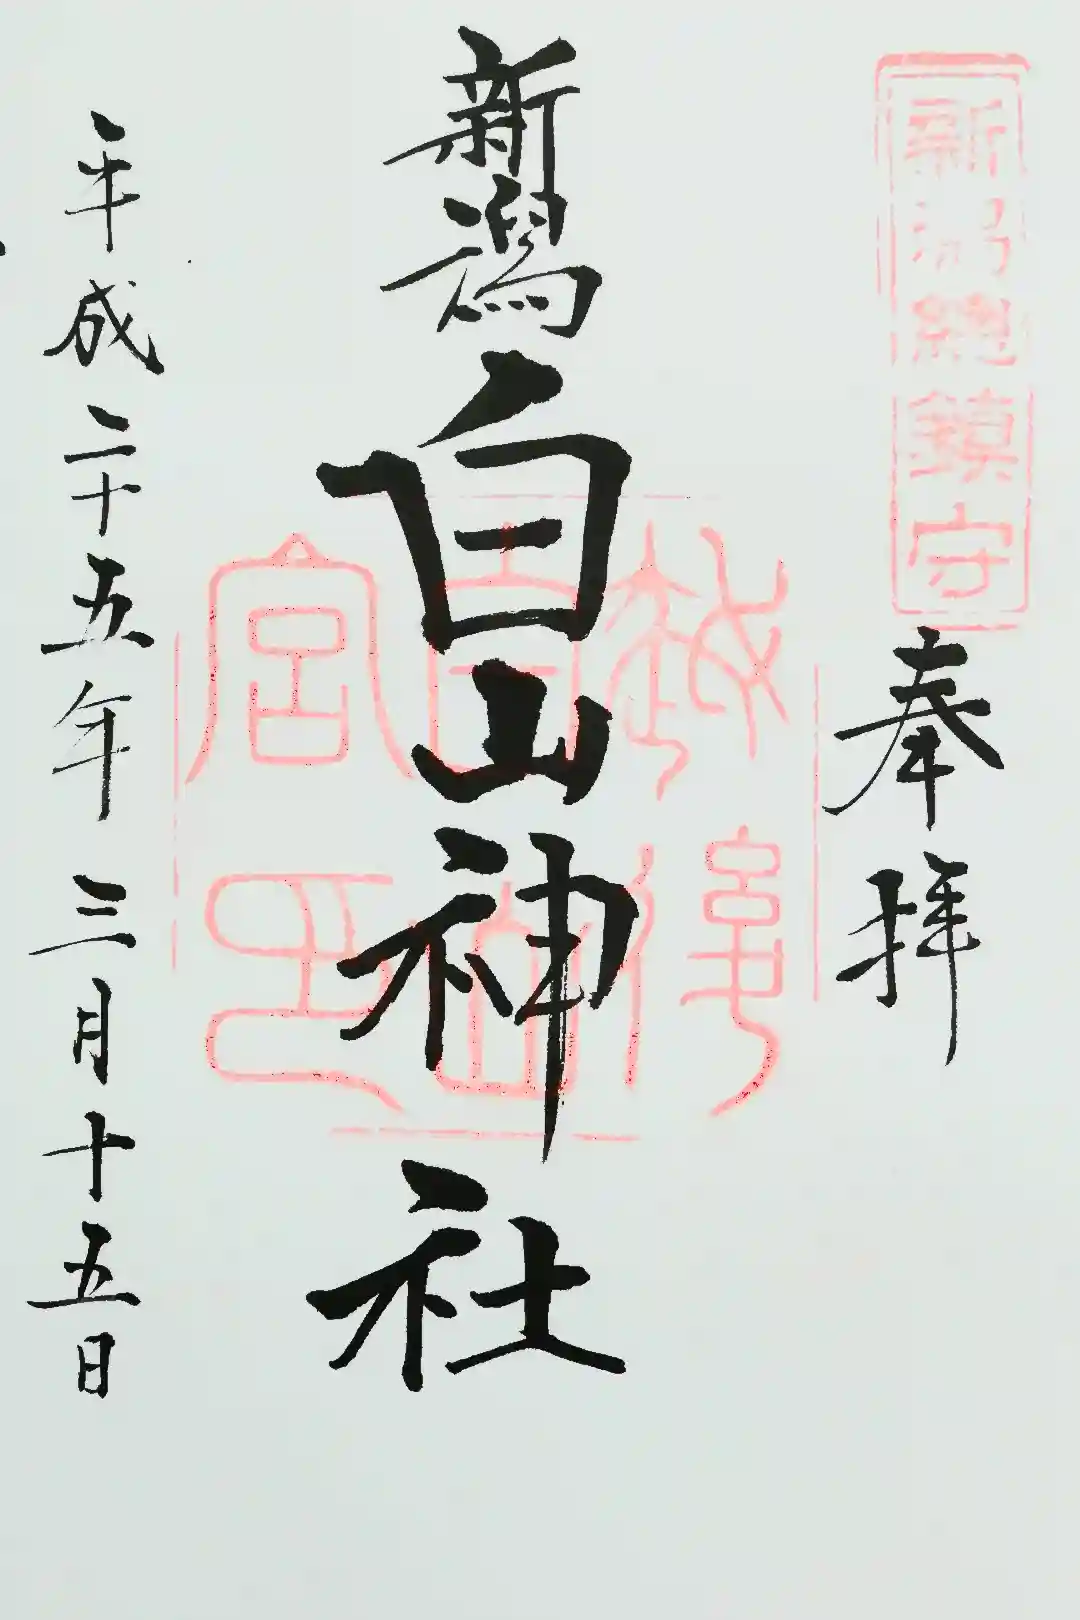 新潟總鎮守
奉拝
越後
白山
宮印
新潟白山神社
平成二十五年三月十五日